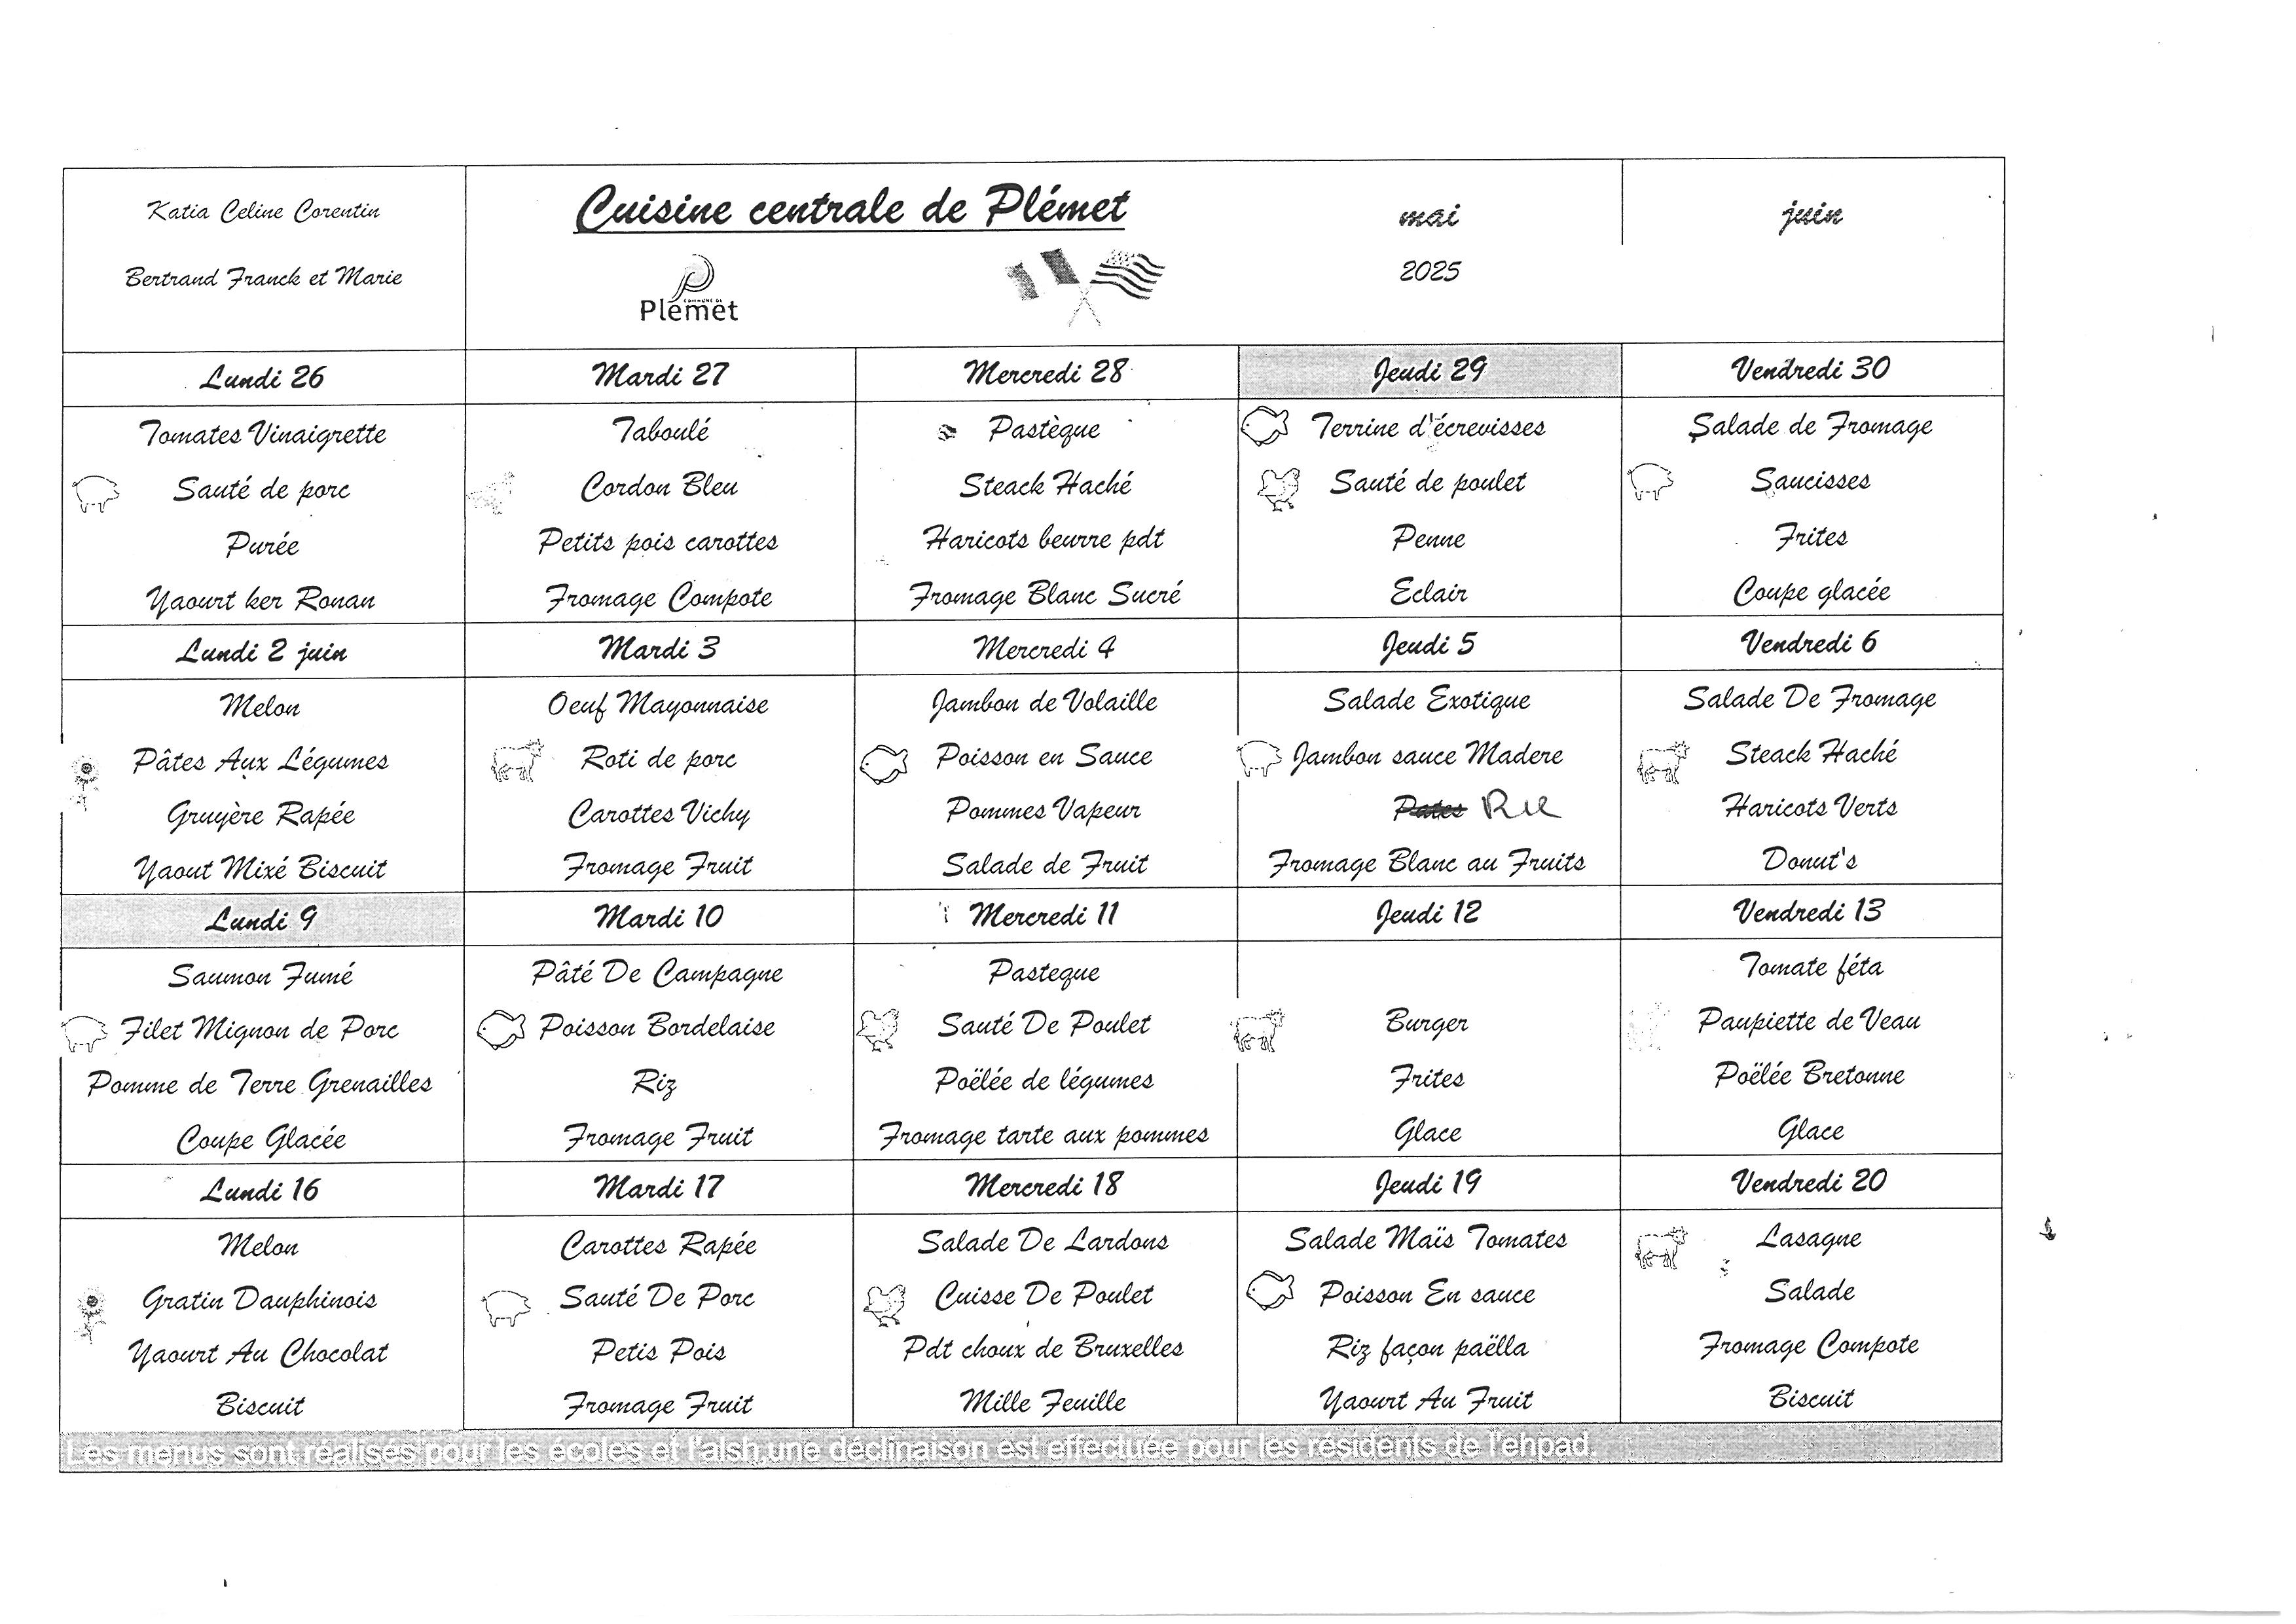 Katia Celine Corentin
Bertrand Franck et Marie
Cuisine centrale de Plémet
COMMUNE DE
Plémet
mai
2025
juin
Lundi 26
Mardi 27
Mercredi 28
Jeudi 29
Vendredi 30
Tomates Vinaigrette
Sauté de porc
Purée
Yaourt ker Ronan
Taboulé
Cordon Bleu
Petits pois carottes
Fromage Compote
Pastèque
Steack Haché
Haricots beurre pdt
Fromage Blanc Sucré
Terrine d'écrevisses
Sauté de poulet
Penne
Eclair
Salade de Fromage
Saucisses
Frites
Coupe glacée
Lundi 2 juin
Mardi 3
Mercredi 4
Jeudi 5
Vendredi 6
Melon
Pâtes Aux Légumes
Gruyère Rapée
Yaout Mixé Biscuit
Oeuf Mayonnaise
Roti de porc
Carottes Vichy
Fromage Fruit
Jambon de Volaille
Poisson en Sauce
Pommes Vapeur
Salade de Fruit
Salade Exotique
Jambon sauce Madere
Pates Riz
Fromage Blanc au Fruits
Salade De Fromage
Steack Haché
Haricots Verts
Donut's
Lundi 9
Mardi 10
Mercredi 11
Jeudi 12
Vendredi 13
Saumon Fumé
Filet Mignon de Porc
Pomme de Terre Grenailles
Coupe Glacée
Pâté De Campagne
Poisson Bordelaise
Riz
Fromage Fruit
Pasteque
Sauté De Poulet
Poëlée de légumes
Fromage tarte aux pommes
Burger
Frites
Glace
Tomate féta
Paupiette de Veau
Poëlée Bretonne
Glace
Lundi 16
Mardi 17
Mercredi 18
Jeudi 19
Vendredi 20
Melon
Gratin Dauphinois
Yaourt Au Chocolat
Biscuit
Carottes Rapée
Sauté De Porc
Petis Pois
Fromage Fruit
Salade De Lardons
Cuisse De Poulet
Pdt choux de Bruxelles
Mille Feuille
Salade Maïs Tomates
Poisson En sauce
Riz façon paëlla
Yaourt Au Fruit
Lasagne
Salade
Fromage Compote
Biscuit
Les menus sont réalisés pour les écoles et l'alsh,une déclinaison est effectuée pour les résidents de l'ehpad.